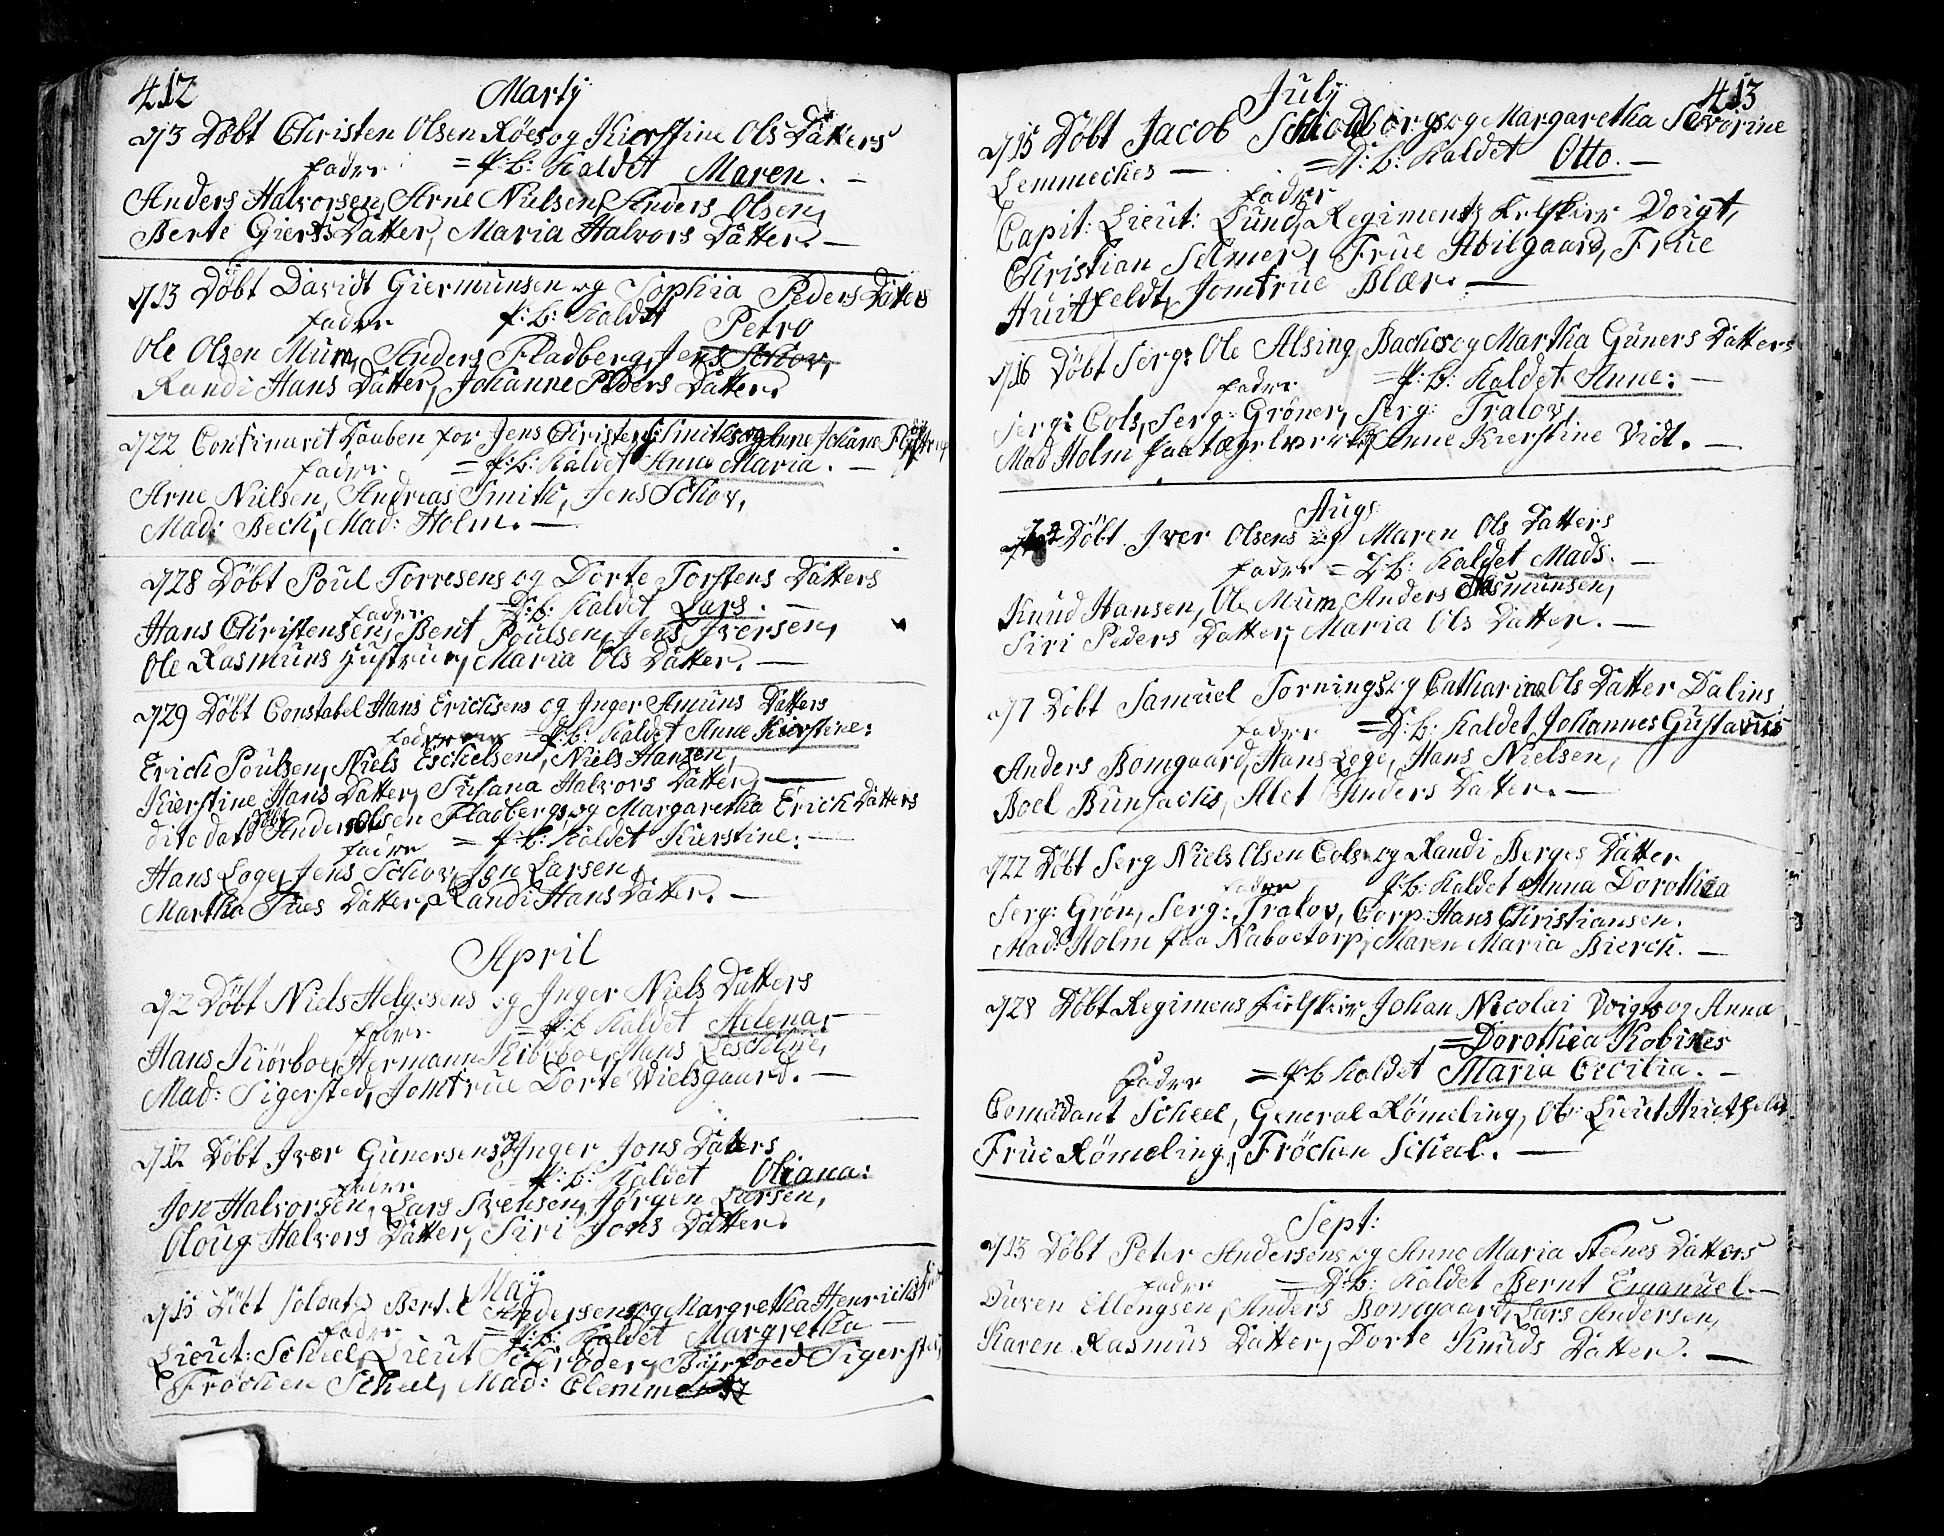 412
Marty
d/3 Döbt Christen Olsen Röes og Kierstine Ols Dätters
fader = P: B: Kaldet Maren. —
Anders Halvorsen, Arne Nielsen, Anders Olsen,
Berte Gierts Datter, Maria Halvors Datter. —
d/13 Döbt Davidt Giermunsen og Sophia Peders Dätters
fader P: B: Kaldet Petro
Ole Olsen Mum, Anders Fladberg, Jens Schov,
Randi Hans Datter, Johanne Peders Datter.
d/22 Confirmerit Dauben for Jens Christen Smiths og Anne Johane
fader = P: B: Kaldet Anna Maria. —
Arne Nielsen, Andreas Smith, Jens Schov,
Mad: Bech, Mad: Holm. —
d/28 Döbt Poul Torresens og Dorte Torstens Dätters
fader D: B: Kaldet Lars. —
Hans Christensen, Bent Poulsen, Jens Iversen,
Ole Rasmuns Hustrue, Maria Ols Datter. —
d/29 Döbt Constabel Hans Erichsens og Inger Amuns Dätters
fader = P: B: Kaldet Anne Kierstine:
Erich Poulsen, Niels Eschelsen, Niels Hansen,
Kierstine Hans Datter, Susana Halvors Datter, —
dito dato Döbt Anders Olsen Fladbergs, og Margaretha Erich Dätters
fader = P: B: Kaldet Kierstine. —
Hans Loge, Jens Schov, Jon Larsen,
Martha Tues Datter, Randi Hans Datter. —
April
d/2 Döbt Niels Helgesens og Inger Niels Dätters
fader = P: B Kaldet Helena. —
Hans Kiörboe, Hermann Kiörboe, Hans
Mad: Sigersted, Jomfrue Dorte Wielsgaard. —
d/12 Döbt Iver Gunersens og Inger Jons Daters
fader P: B: Kaldet Oliana:
Jon Halvorsen, Lars Svensen, Jörgen Larsen,
Oloug Halvors Datter, Siri Jons Datter.
May
d/15 Döbt Soldat Bertel Andersens og Margretha Henrichs
fader = P: B: Kaldet Margretha —
Lieut: Scheel, Lieut Schröder, Byefoed Sigersted,
Fröchen Scheel, Mad: Clemme
413
July
d/15 Döbt Jacob Schioldborgs og Margaretha Severine
Lemmeckes — = D: B: Kaldet Otto. —
fader
Capit: Lieut: Lund, Regiments Feltskier Voigt,
Christian Selmer, Frue Abilgaard, Frue
Huitfeldt, Jomfrue Blær. —
d/16 Döbt Serg: Ole Alsing Bachs og Martha Guners Dätters
fader = P: B: Kaldet Anne: —
Serg: Cols, Serg: Gröner, Serg: Tralov,
Mad Holm paa tægelverket, Anne Kierstine Vidt. —
Augs
Döbt Iver Olsens og Maren Ols Datters
fader = D: B: Kaldet Mads. —
Knud Hansen, Ole Mum, Anders Rasmunsen,
Siri Peders Datter, Maria Ols Datter. —
d/7 Döbt Samuel Tornings og Catharina Ols Datter Dalins
fader = D: B: Kaldet Johannes Gustavus
Anders Bomgaard, Hans Loge, Hans Nielsen,
Boel Bunsachs, Alet Anders Datter. —
d/22 Döbt Serg Niels Olsen Cols og Randi Berges Datter
fader P: B: Kaldet Anna Dorothea
Serg: Grön, Serg: Tralov, Corp: Hans Christiansen.
Mad: Holm paa Naboetorp, Maren Maria Bierck. —
d/28 Döbt Regimens Feltskier Johan Nicolai Voigts og Anna
= Dorothea Kobines
fader = P: B Kaldet Maria Cecilia. —
Comedant Scheel, General Römeling, Ob: Lieut Huitfeldt
Frue Römeling, Fröchen Scheel. —
Sept:
d/13 Döbt Peter Andersens og Anne Maria Steenes Dätters
fader = D: B: Kaldet Bernt Emanuel. —
Duven Ellengsen, Anders Bomgaard, Lars Andersen,
Karen Rasmus Datter, Dorte Knuds Datter. —